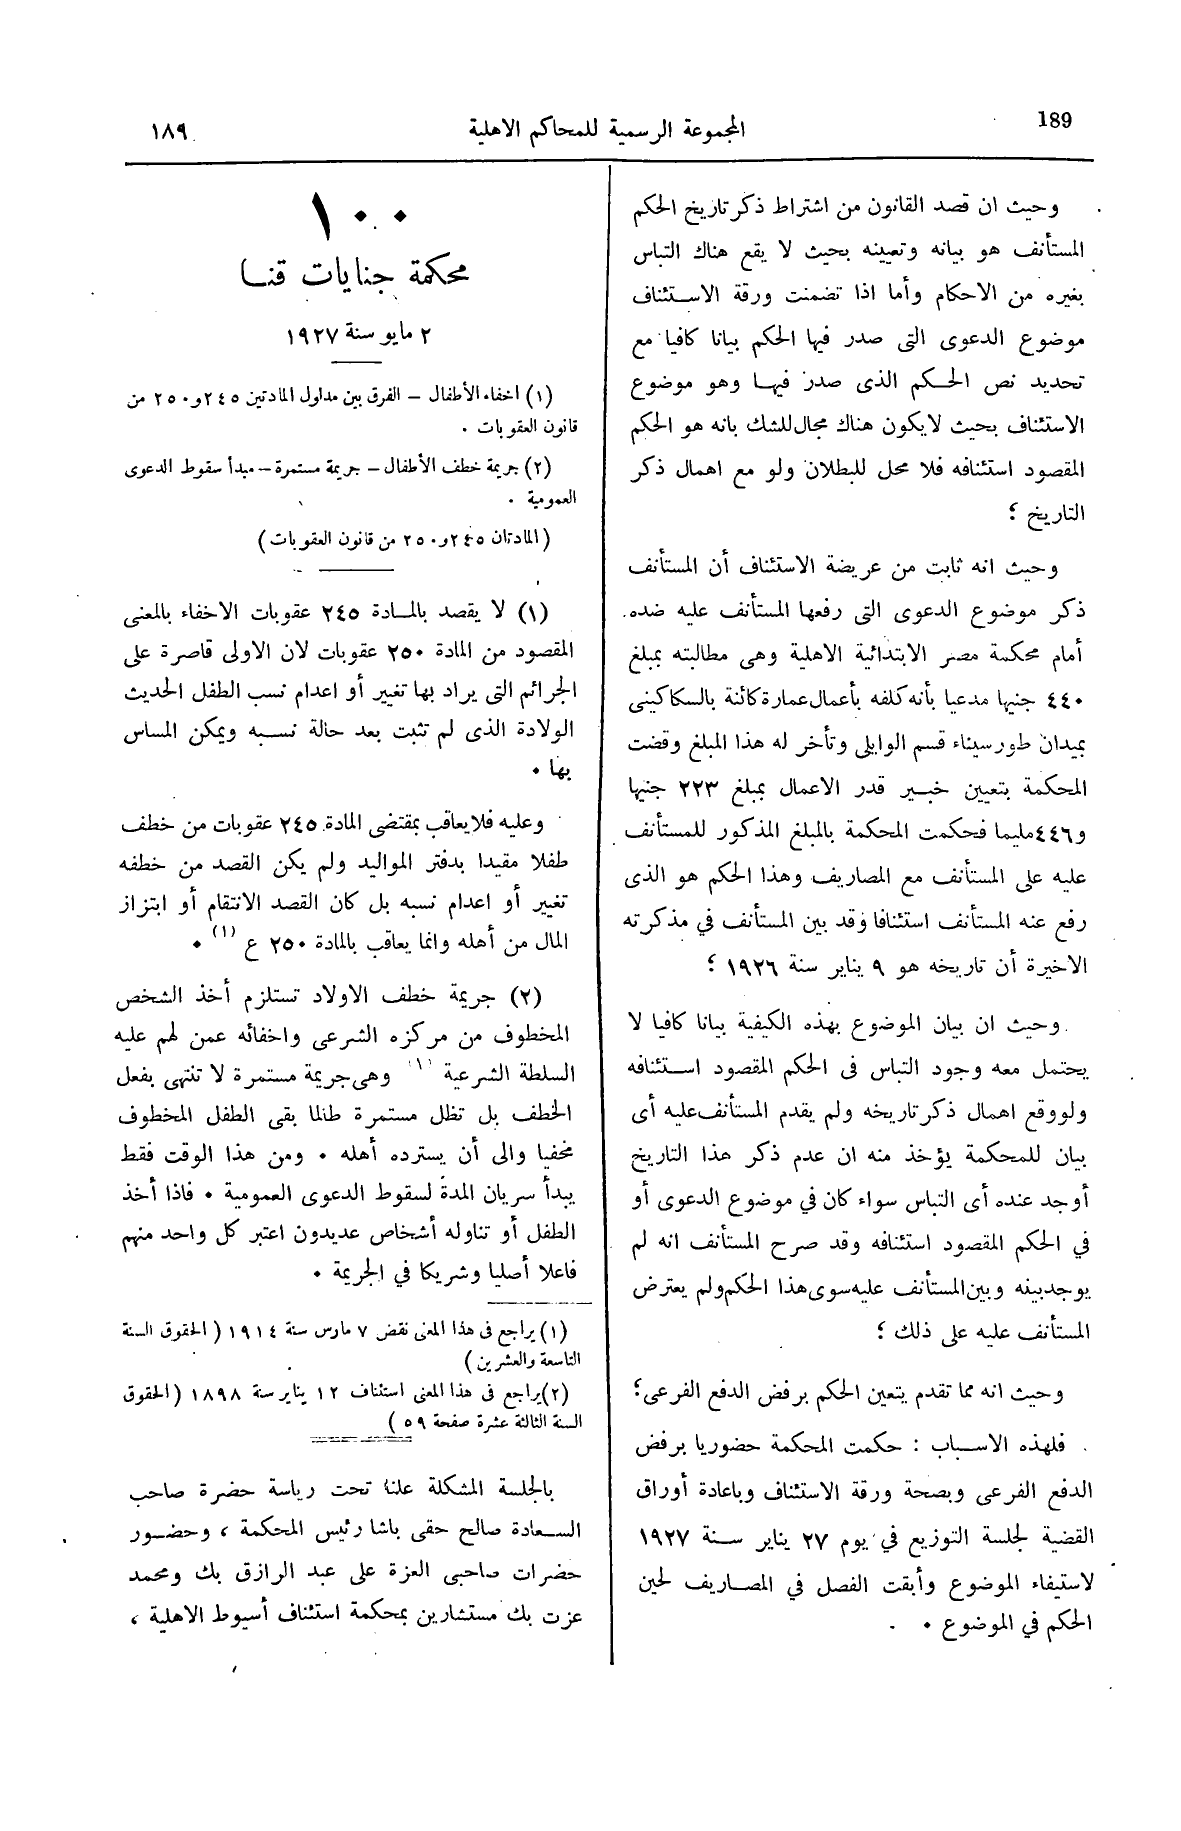 189
المجموعة الرسمية للمحاكم الاهلية
١٨٩
وحيث ان قصد القانون من اشتراط ذكر تاريخ الحكم
المستأنف هو بيانه وتعيينه بحيث لا يقع هناك التباس
بغيره من الاحكام وأما اذا تضمنت ورقة الاستئناف
موضوع الدعوى التى صدر فيها الحكم بيانا كافيا مع
تحديد نص الحكم الذى صدر فيها وهو موضوع
الاستئناف بحيث لا يكون هناك مجال للشك بانه هو الحكم
المقصود استئنافه فلا محل للبطلان ولو مع اهمال ذكر
التاريخ ؛
وحيث انه ثابت من عريضة الاستئناف أن المستأنف
ذكر موضوع الدعوى التى رفعها المستأنف عليه ضده
أمام محكمة مصر الابتدائية الاهلية وهى مطالبته بمبلغ
٤٤٠ جنيها مدعيا بأنه كلفه بأعمال عمارة كائنة بالسكاكينى
بميدان طور سيناء قسم الوايلى وتأخر له هذا المبلغ وقضت
المحكمة بتعيين خبير قدر الاعمال بمبلغ ٢٢٣ جنيها
و٤٤٦ مليما فحكمت المحكمة بالمبلغ المذكور للمستأنف
عليه على المستأنف مع المصاريف وهذا الحكم هو الذى
رفع عنه المستأنف استئنافا وقد بين المستأنف في مذكرته
الاخيرة أن تاريخه هو ٩ يناير سنة ١٩٢٦ ؛
وحيث ان بيان الموضوع بهذه الكيفية بيانا كافيا لا
يحتمل معه وجود التباس فى الحكم المقصود استئنافه
ولو وقع اهمال ذكر تاريخه ولم يقدم المستأنف عليه أى
بيان للمحكمة يؤخذ منه ان عدم ذكر هذا التاريخ
أوجد عنده أى التباس سواء كان في موضوع الدعوى أو
في الحكم المقصود استئنافه وقد صرح المستأنف انه لم
يوجد بينه وبين المستأنف عليه سوى هذا الحكم ولم يعترض
المستأنف عليه على ذلك ؛
وحيث انه مما تقدم يتعين الحكم برفض الدفع الفرعى ؛
فلهذه الاسباب : حكمت المحكمة حضوريا برفض
الدفع الفرعى وبصحة ورقة الاستئناف وباعادة أوراق
القضية لجلسة التوزيع في يوم ٢٧ يناير سنة ١٩٢٧
لاستيفاء الموضوع وأبقت الفصل في المصاريف لحين
الحكم في الموضوع .
١٠٠
محكمة جنايات قنا
٢ مايو سنة ١٩٢٧
(١) اخفاء الأطفال – الفرق بين مدلول المادتين ٢٤٥ و٢٥٠ من
قانون العقوبات .
(٢) جريمة خطف الأطفال – جريمة مستمرة – مبدأ سقوط الدعوى
العمومية .
(المادتان ٢٤٥ و٢٥٠ من قانون العقوبات)
(١) لا يقصد بالمادة ٢٤٥ عقوبات الاخفاء بالمعنى
المقصود من المادة ٢٥٠ عقوبات لان الاولى قاصرة على
الجرائم التى يراد بها تغيير أو اعدام نسب الطفل الحديث
الولادة الذى لم تثبت بعد حالة نسبه ويمكن المساس
بها .
وعليه فلا يعاقب بمقتضى المادة ٢٤٥ عقوبات من خطف
طفلا مقيدا بدفتر المواليد ولم يكن القصد من خطفه
تغيير أو اعدام نسبه بل كان القصد الانتقام أو ابتزاز
المال من أهله وانما يعاقب بالمادة ٢٥٠ ع (١) .
(٢) جريمة خطف الاولاد تستلزم أخذ الشخص
المخطوف من مركزه الشرعى واخفائه عمن لهم عليه
السلطة الشرعية (١) وهى جريمة مستمرة لا تنتهى بفعل
الخطف بل تظل مستمرة طالما بقى الطفل المخطوف
مخفيا والى أن يسترده أهله . ومن هذا الوقت فقط
يبدأ سريان المدة لسقوط الدعوى العمومية . فاذا أخذ
الطفل أو تناوله أشخاص عديدون اعتبر كل واحد منهم
فاعلا أصليا وشريكا في الجريمة .
(١) يراجع فى هذا المعنى نقض ٧ مارس سنة ١٩١٤ (الحقوق السنة
التاسعة والعشرين)
(٢) يراجع فى هذا المعنى استئناف ١٢ يناير سنة ١٨٩٨ (الحقوق
السنة الثالثة عشرة صفحة ٥٩)
بالجلسة المشكلة علنا تحت رياسة حضرة صاحب
السعادة صالح حقى باشا رئيس المحكمة ، وحضور
حضرات صاحبى العزة على عبد الرازق بك ومحمد
عزت بك مستشارين بمحكمة استئناف أسيوط الاهلية ،